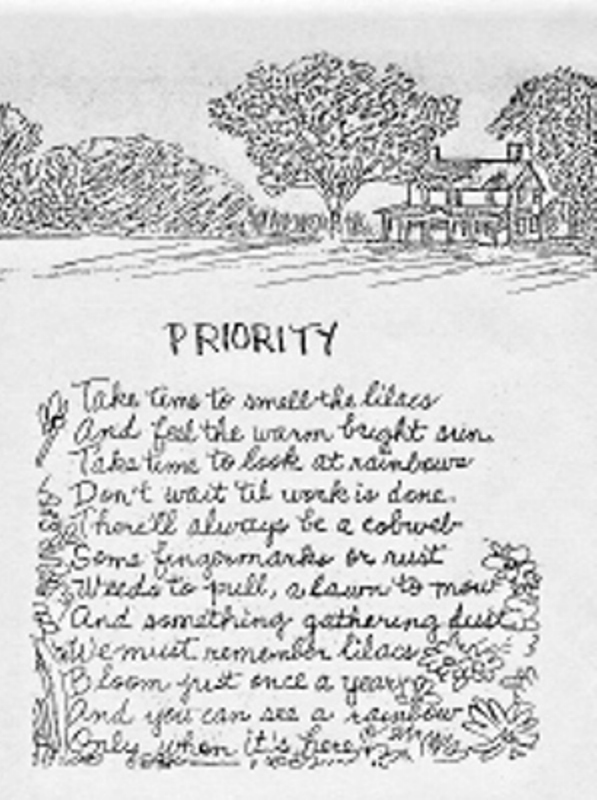 PRIORITY
Take time to smell the lilacs
And feel the warm bright sun.
Take time to look at rainbows
Don't wait til work is done.
There'll always be a cobweb
Some fingermarks or rust
Weeds to pull, a lawn to mow
And something gathering dust.
We must remember lilacs
Bloom just once a year
And you can see a rainbow
Only when it's here.